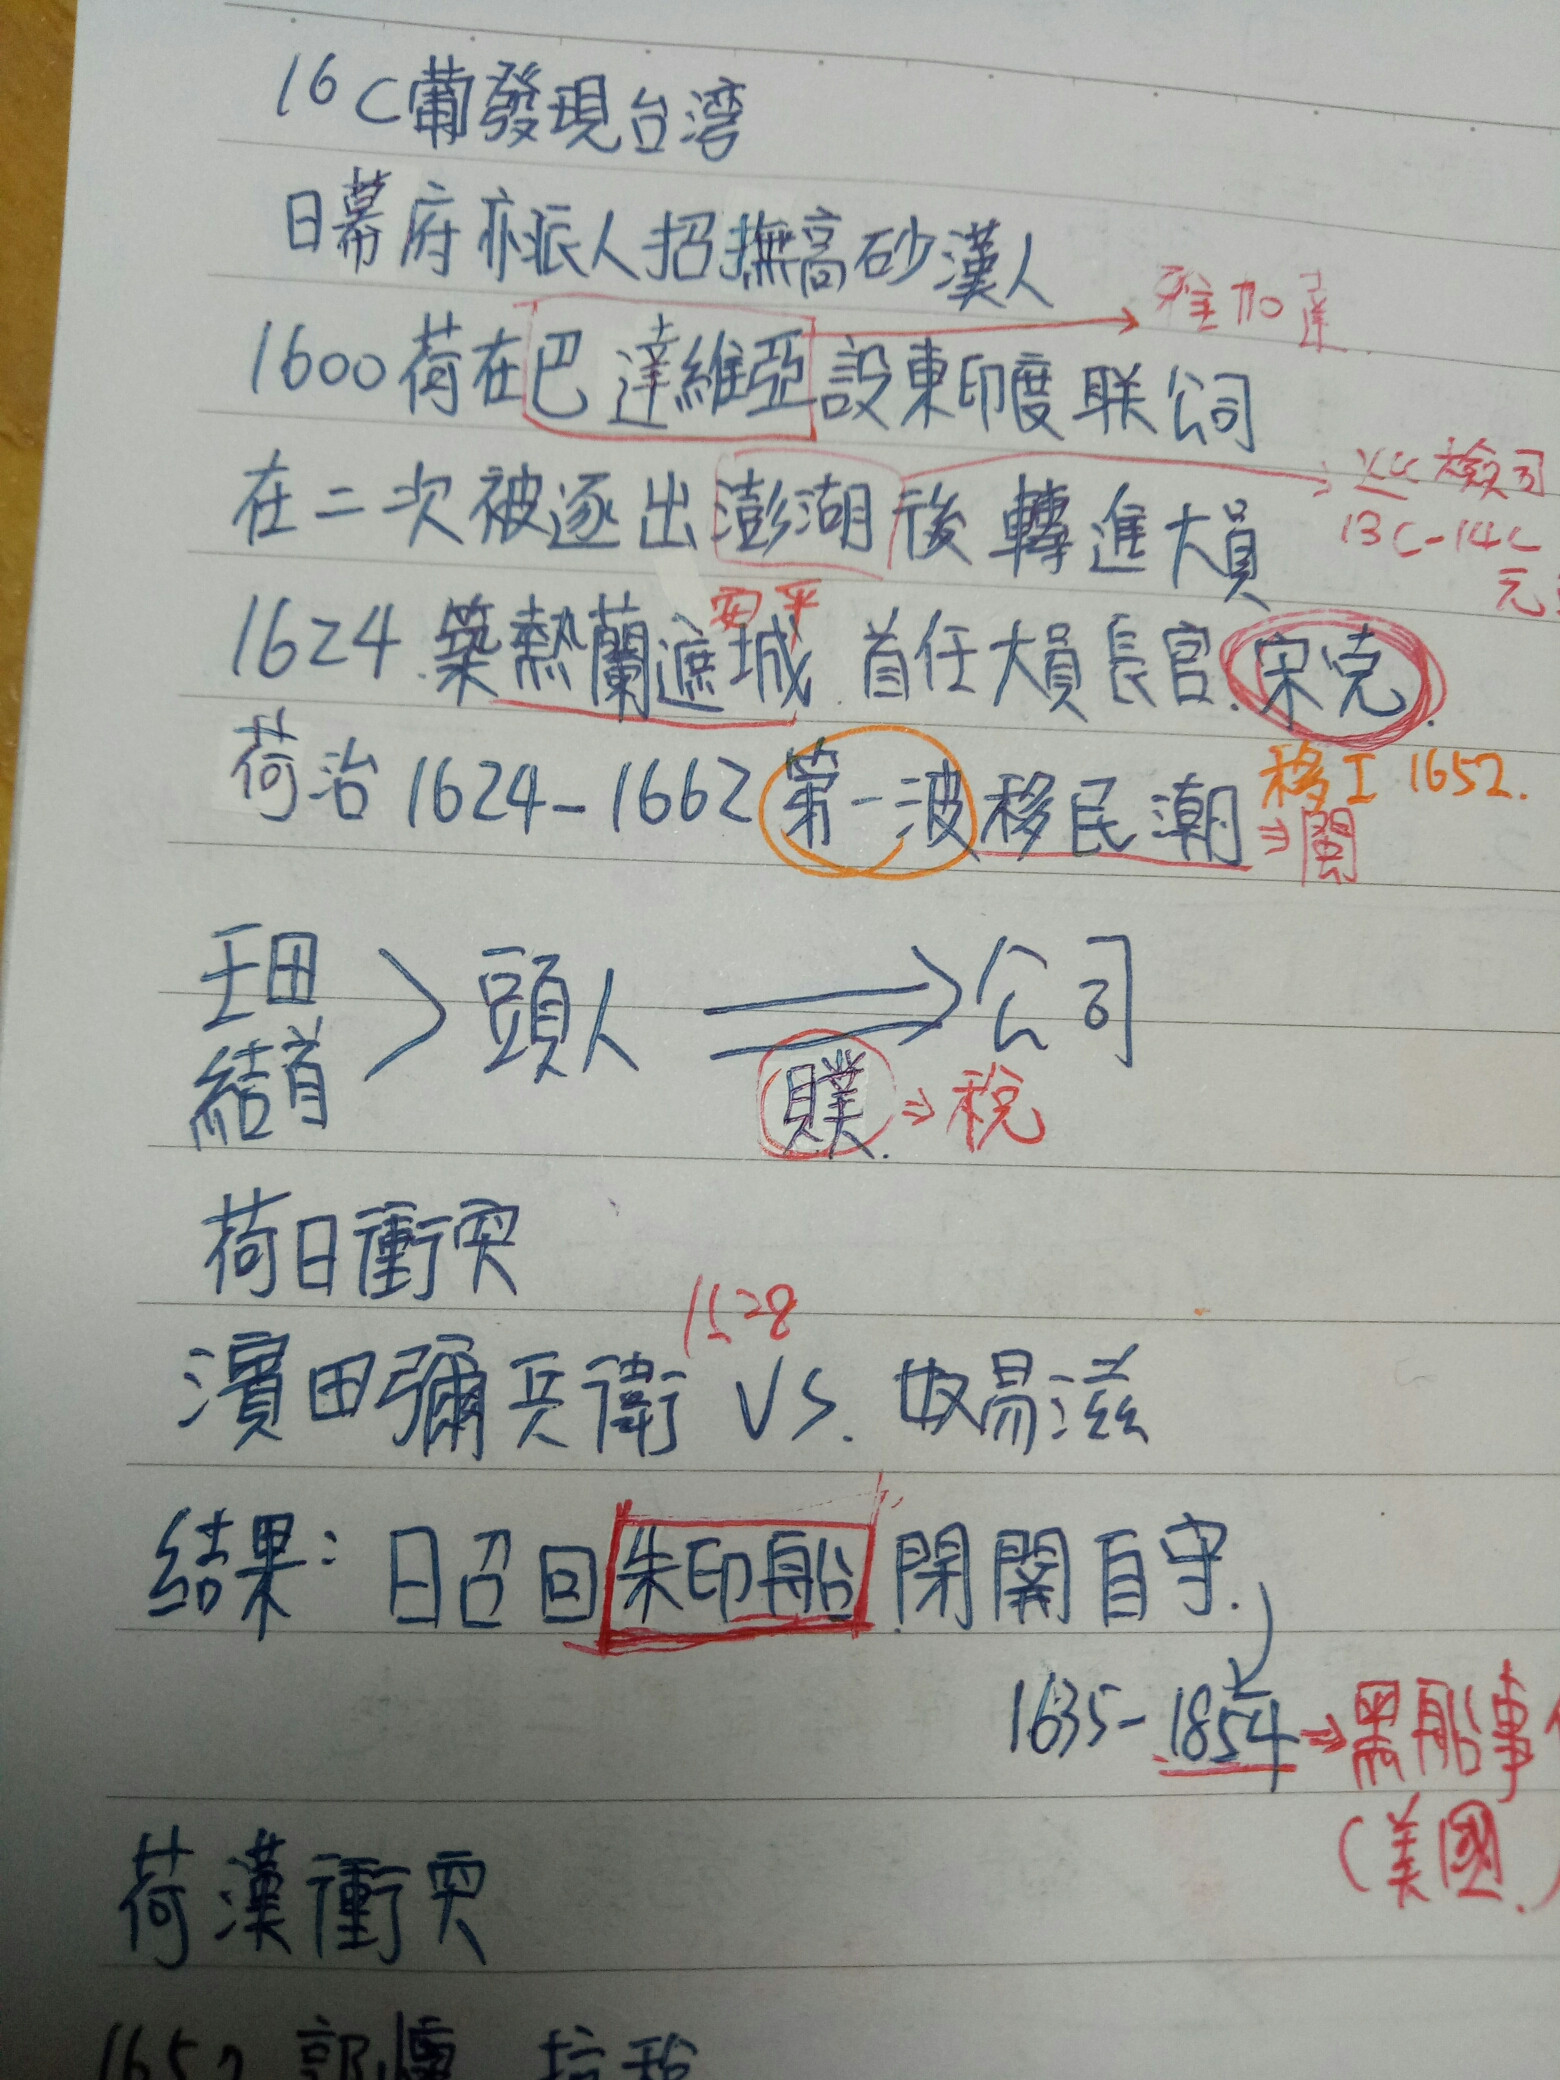 16C葡發現台湾
日幕府亦派人招撫高砂漢人
雅加達
1600荷在巴達維亞設東印度联公司
檢司
13C-14C
元
在二次被逐出澎湖後轉進大員
安平
1624.築熱蘭遮城.首任大員長官.宋克.
荷治1624-1662第一波移民潮
移工1652.
⇒閩
王田
結首
>頭人⇒公司
贌.⇒稅
荷日衝突
1528
濱田彌兵衛 VS. 奴易滋
結果:日召回朱印船.閉關自守.
1635-1854⇒黑船事
(美國.)
荷漢衝突
1652郭懷 抗稅